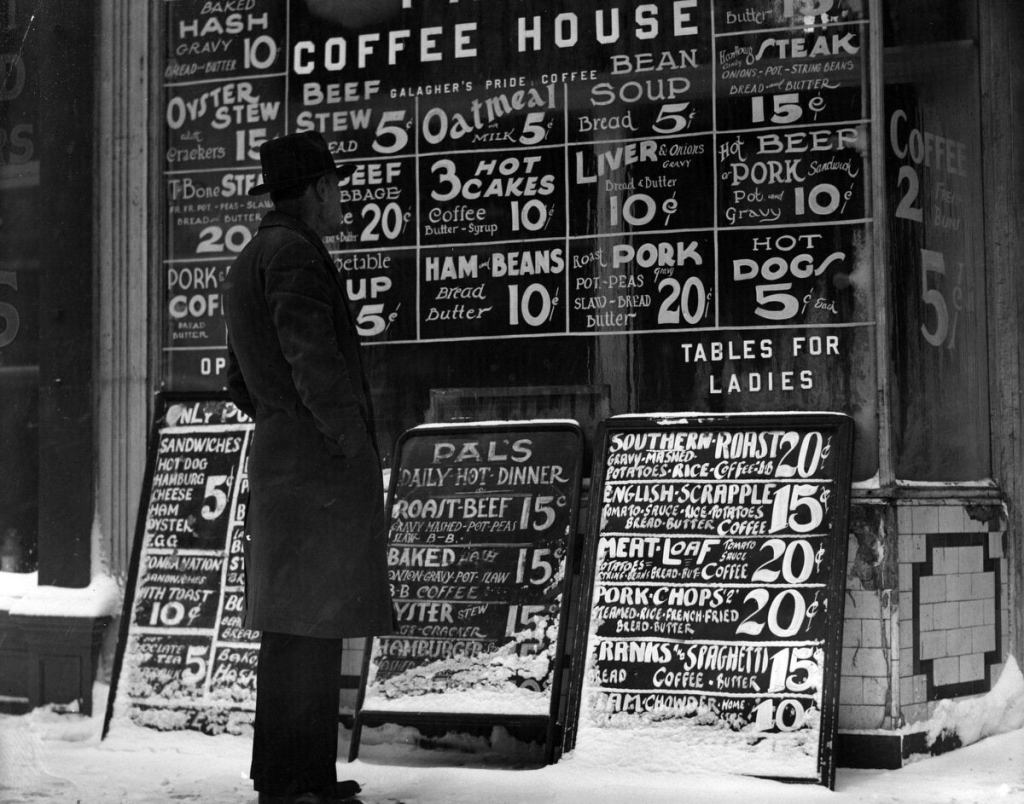 BAKED
HASH
GRAVY 10
BREAD AND BUTTER
COFFEE HOUSE
GALAGHER'S PRIDE COFFEE
Butter
15¢
OYSTER
STEW
Crackers 15
BEEF
STEW 5¢
Oatmeal
MILK 5¢
BEAN
SOUP
Bread 5¢
STEAK
ONIONS-POT-STRING BEANS
BREAD and BUTTER
15¢
T-Bone
FR. FR. POT-PEAS-SLAW
BREAD and BUTTER
20
20¢
3 HOT
CAKES
Coffee
Butter-Syrup 10¢
LIVER & Onions
GRAVY
Bread & Butter
10¢
Hot BEEF
or PORK Sandwich
Pot. and
Gravy 10¢
PORK
BREAD
BUTTER
5¢
HAM and BEANS
Bread
Butter 10¢
Roast PORK
gravy
POT.-PEAS
SLAW-BREAD
Butter 20¢
HOT
DOGS
5¢ Each
COFFEE
2
5¢
OP
TABLES FOR
LADIES
SANDWICHES
HOT DOG
HAMBURG
CHEESE 5¢
HAM
OYSTER
EGG
COMBINATION
SANDWICHES
WITH TOAST
10¢
TEA 5
PAL'S
DAILY-HOT-DINNER
ROAST-BEEF 15¢
GRAVY MASHED-POT-PEAS
SLAW B-B.
BAKED HASH 15¢
ONION-GRAVY-POT-SLAW
B-B COFFEE
OYSTER STEW 15
CRACKER
HAMBURGER
SOUTHERN-ROAST 20¢
GRAVY-MASHED
POTATOES-RICE-COFFEE-B-B
ENGLISH-SCRAPPLE 15¢
TOMATO-SAUCE-RICE-POTATOES
BREAD-BUTTER COFFEE
MEAT-LOAF TOMATO SAUCE 20¢
POTATOES
STRING-BEAN-BREAD-BUT-COFFEE
PORK-CHOPS "2" 20¢
STEAMED-RICE-FRENCH-FRIED
BREAD-BUTTER
FRANKS SPAGHETTI 15¢
BREAD COFFEE-BUTTER
CHOWDER HOME 10¢